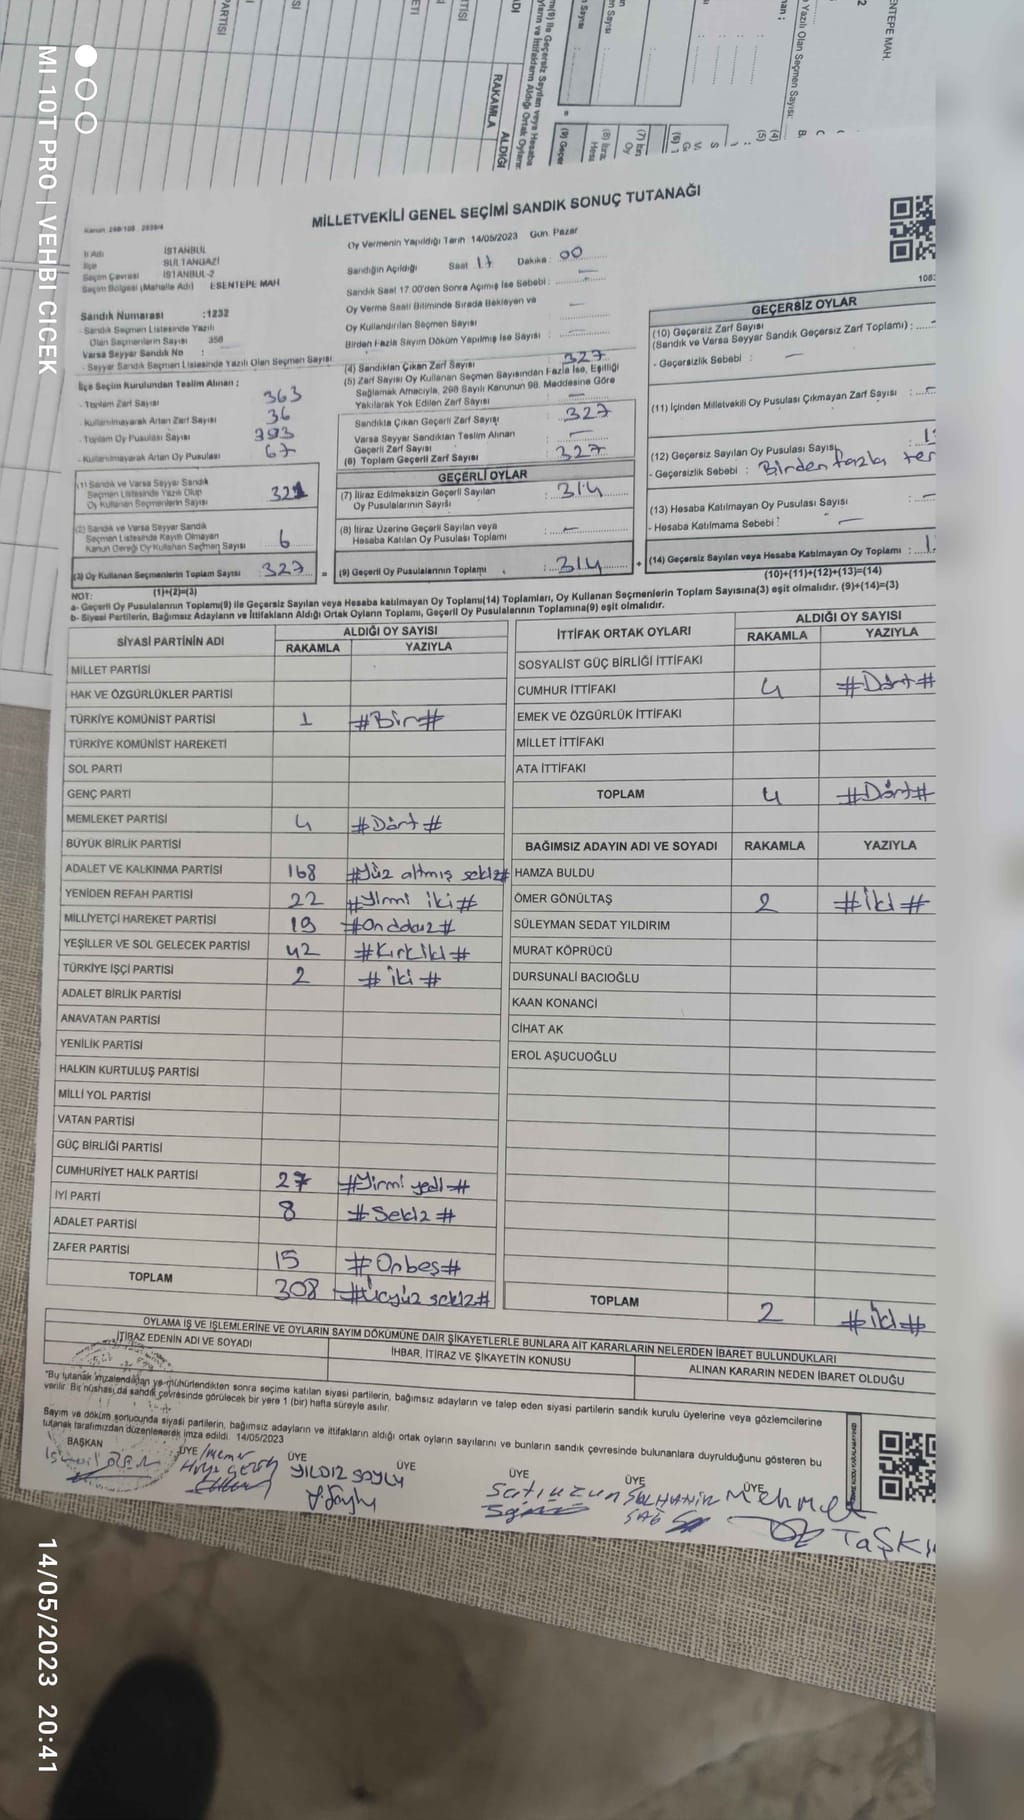 MİLLETVEKİLİ GENEL SEÇİMİ SANDIK SONUÇ TUTANAĞI
İl Adı İSTANBUL
İlçe SULTANGAZİ
Seçim Çevresi İSTANBUL-2
Seçim Bölgesi (Mahalle Adı) ESENTEPE MAH
Sandık Numarası :1232
Sandık Seçmen Listesinde Yazılı
Olan Seçmenlerin Sayısı 358
Varsa Seyyar Sandık No :
- Seyyar Sandık Seçmen Listesinde Yazılı Olan Seçmen Sayısı:
İlçe Seçim Kurulundan Teslim Alınan ;
- Toplam Zarf Sayısı 363
- Kullanılmayarak Artan Zarf Sayısı 36
- Toplam Oy Pusulası Sayısı 393
- Kullanılmayarak Artan Oy Pusulası 67
(1) Sandık ve Varsa Seyyar Sandık
Seçmen Listesinde Yazılı Olup
Oy Kullanan Seçmenlerin Sayısı 321
(2) Sandık ve Varsa Seyyar Sandık
Seçmen Listesinde Kayıtlı Olmayan
Kanun Gereği Oy Kullanan Seçmen Sayısı 6
(3) Oy Kullanan Seçmenlerin Toplam Sayısı 327
(1)+(2)=(3)
Oy Vermenin Yapıldığı Tarih 14/05/2023 Gün. Pazar
Sandığın Açıldığı Saat 17 Dakika : 00
Sandık Saat 17.00'den Sonra Açımış İse Sebebi :
Oy Verme Saati Bitiminde Sırada Bekleyen ve
Oy Kullandırılan Seçmen Sayısı
Birden Fazla Sayım Döküm Yapılmış İse Sayısı
(4) Sandıktan Çıkan Zarf Sayısı 327
(5) Zarf Sayısı Oy Kullanan Seçmen Sayısından Fazla İse, Eşitliği
Sağlamak Amacıyla, 298 Sayılı Kanunun 98. Maddesine Göre
Yakılarak Yok Edilen Zarf Sayısı
Sandıkta Çıkan Geçerli Zarf Sayısı 327
Varsa Seyyar Sandıktan Teslim Alınan
Geçerli Zarf Sayısı
(6) Toplam Geçerli Zarf Sayısı 327
GEÇERLİ OYLAR
(7) İtiraz Edilmeksizin Geçerli Sayılan
Oy Pusulalarının Sayısı : 314
(8) İtiraz Üzerine Geçerli Sayılan veya
Hesaba Katılan Oy Pusulası Toplamı
(9) Geçerli Oy Pusulalarının Toplamı : 314
GEÇERSİZ OYLAR
(10) Geçersiz Zarf Sayısı
(Sandık ve Varsa Seyyar Sandık Geçersiz Zarf Toplamı) :
- Geçersizlik Sebebi :
(11) İçinden Milletvekili Oy Pusulası Çıkmayan Zarf Sayısı
(12) Geçersiz Sayılan Oy Pusulası Sayısı
- Geçersizlik Sebebi : Birden fazla ter
(13) Hesaba Katılmayan Oy Pusulası Sayısı
- Hesaba Katılmama Sebebi :
(14) Geçersiz Sayılan veya Hesaba Katılmayan Oy Toplamı
(10)+(11)+(12)+(13)=(14)
NOT:
a- Geçerli Oy Pusulalarının Toplamı(9) ile Geçersiz Sayılan veya Hesaba katılmayan Oy Toplamı(14) Toplamları, Oy Kullanan Seçmenlerin Toplam Sayısına(3) eşit olmalıdır. (9)+(14)=(3)
b- Siyasi Partilerin, Bağımsız Adayların ve İttifakların Aldığı Ortak Oyların Toplamı, Geçerli Oy Pusulalarının Toplamına(9) eşit olmalıdır.
SİYASİ PARTİNİN ADI ALDIĞI OY SAYISI
RAKAMLA YAZIYLA
MİLLET PARTİSİ
HAK VE ÖZGÜRLÜKLER PARTİSİ
TÜRKİYE KOMÜNİST PARTİSİ 1 #Bir#
TÜRKİYE KOMÜNİST HAREKETİ
SOL PARTİ
GENÇ PARTİ
MEMLEKET PARTİSİ 4 #Dört#
BÜYÜK BİRLİK PARTİSİ
ADALET VE KALKINMA PARTİSİ 168 #Yüz altmış sekiz#
YENİDEN REFAH PARTİSİ 22 #Yirmi iki#
MİLLİYETÇİ HAREKET PARTİSİ 19 #Ondokuz#
YEŞİLLER VE SOL GELECEK PARTİSİ 42 #Kırkiki#
TÜRKİYE İŞÇİ PARTİSİ 2 #iki#
ADALET BİRLİK PARTİSİ
ANAVATAN PARTİSİ
YENİLİK PARTİSİ
HALKIN KURTULUŞ PARTİSİ
MİLLİ YOL PARTİSİ
VATAN PARTİSİ
GÜÇ BİRLİĞİ PARTİSİ
CUMHURİYET HALK PARTİSİ 27 #Yirmi yedi#
İYİ PARTİ 8 #Sekiz#
ADALET PARTİSİ
ZAFER PARTİSİ 15 #Onbeş#
TOPLAM 308 #Üçyüz sekiz#
İTTİFAK ORTAK OYLARI ALDIĞI OY SAYISI
RAKAMLA YAZIYLA
SOSYALİST GÜÇ BİRLİĞİ İTTİFAKI
CUMHUR İTTİFAKI 4 #Dört#
EMEK VE ÖZGÜRLÜK İTTİFAKI
MİLLET İTTİFAKI
ATA İTTİFAKI
TOPLAM 4 #Dört#
BAĞIMSIZ ADAYIN ADI VE SOYADI RAKAMLA YAZIYLA
HAMZA BULDU
ÖMER GÖNÜLTAŞ 2 #İki#
SÜLEYMAN SEDAT YILDIRIM
MURAT KÖPRÜCÜ
DURSUNALİ BACIOĞLU
KAAN KONANCİ
CİHAT AK
EROL AŞUCUOĞLU
TOPLAM 2 #İki#
OYLAMA İŞ VE İŞLEMLERİNE VE OYLARIN SAYIM DÖKÜMÜNE DAİR ŞİKAYETLERLE BUNLARA AİT KARARLARIN NELERDEN İBARET BULUNDUKLARI
İTİRAZ EDENİN ADI VE SOYADI İHBAR, İTİRAZ VE ŞİKAYETİN KONUSU ALINAN KARARIN NEDEN İBARET OLDUĞU
"Bu tutanak imzalandıktan ve mühürlendikten sonra seçime katılan siyasi partilerin, bağımsız adayların ve talep eden siyasi partilerin sandık kurulu üyelerine veya gözlemcilerine
verilir. Bir nüshası da sandık çevresinde görülecek bir yere 1 (bir) hafta süreyle asılır.
Sayım ve döküm sonucunda siyasi partilerin, bağımsız adayların ve ittifakların aldığı ortak oyların sayılarını ve bunların sandık çevresinde bulunanlara duyrulduğunu gösteren bu
tutanak tarafımızdan düzenlenerek imza edildi. 14/05/2023
BAŞKAN ÜYE ÜYE ÜYE ÜYE ÜYE ÜYE
YILDIZ SOYLU
Mehmet
TAŞKI
MI 10T PRO | VEHBI CICEK
14/05/2023 20:41